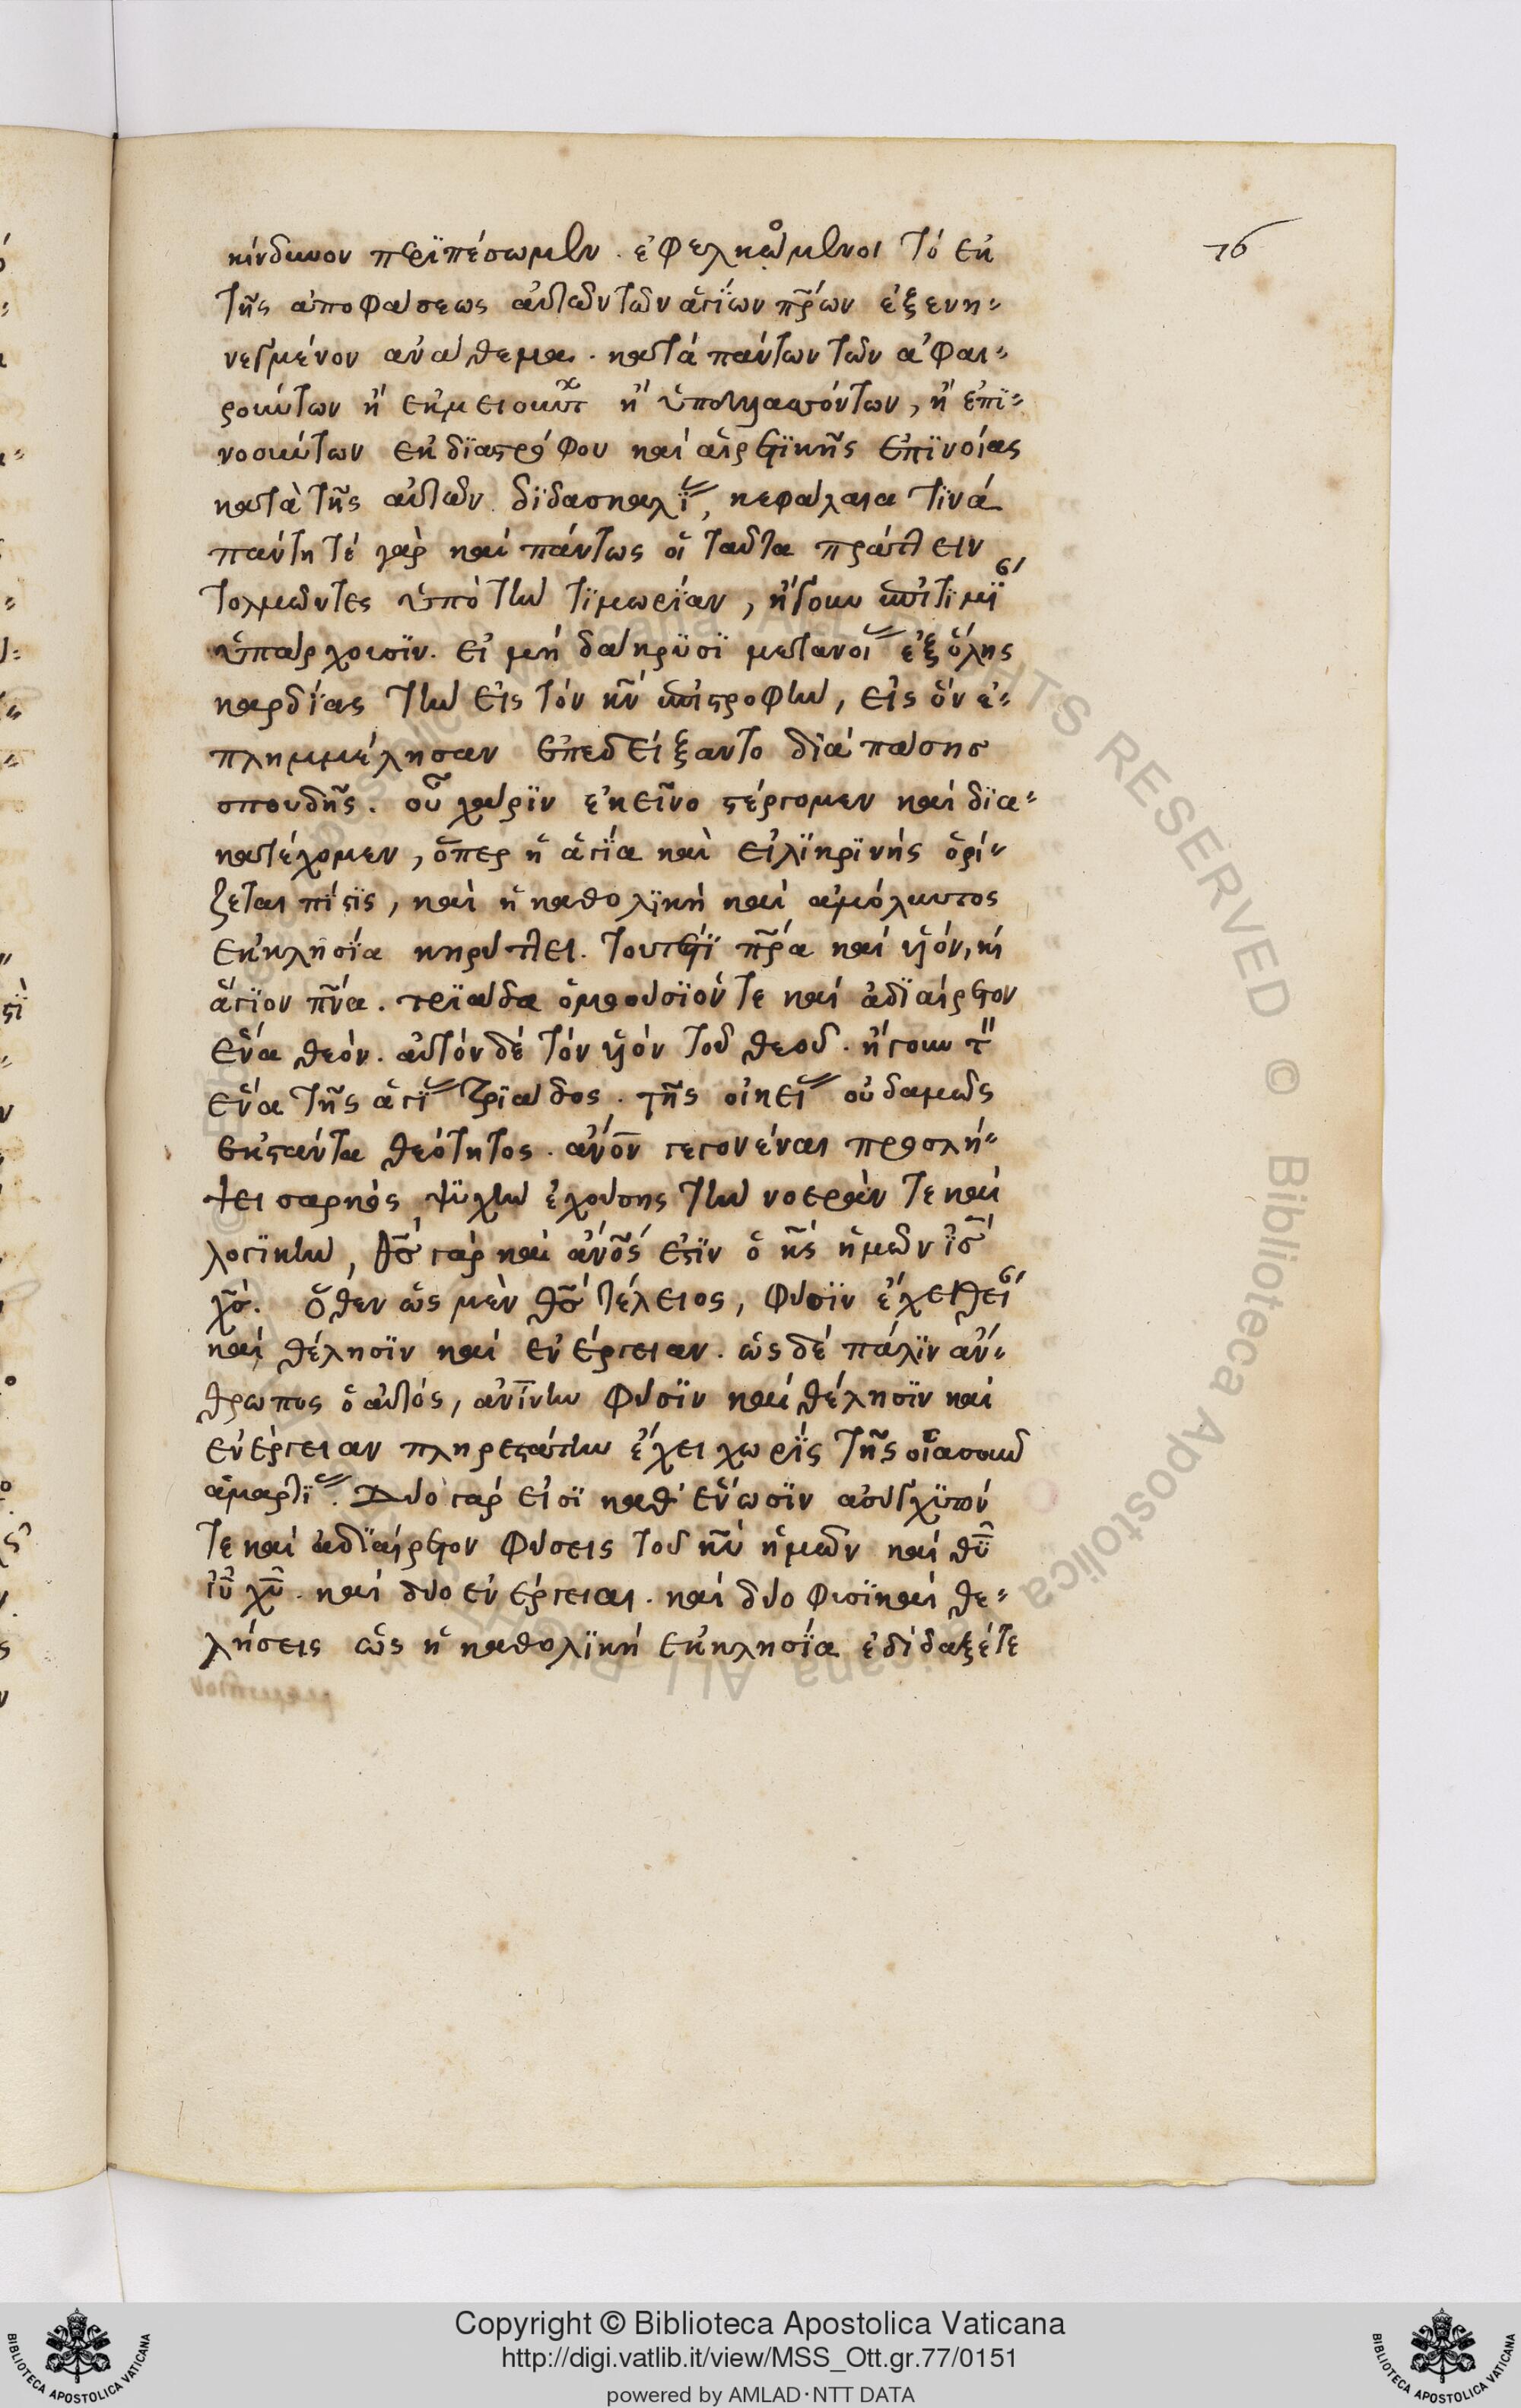 76
κίνδυνον περϊπέσωμεν. ἐφελκόμενοι τό ἐκ
τῆς ἀποφάσεως αὐτῶν τῶν ἁγΐων πρ̅ων ἐξενη-
νεγμένον ἀνάθεμα. κατά πάντων τῶν ἀφαι-
ρούντων ἤ ἐκμειούντ ἤ ὑπονηχόντων, ἤ ἐπϊ-
νοούντων ἐκ δϊαστρόφου καί αἱρετϊκῆς ἐπϊνοίας
κατὰ τῆς αὐτῶν δϊδασκαλΐ, κεφάλαια τϊνά
πάντη τέ γάρ καί πάντως οἱ ταῦτα πράττειν
τολμῶντες ὑπὸ τὴν τϊμωρΐαν, ἤγουν ἐπιτϊμΐ
ὑπάρχουσϊν. εἰ μή δάκρϋσϊ μετανοί ἐξ ὅλης
καρδΐας τὴν εἰς τόν κν̅ ἐπιστροφὴν, εἰς ὅν ἐ-
πλημμέλησαν ἐπεδείξαντο δϊά πάσης
σπουδῆς. οὗ χάρϊν ἐκεῖνο στέργομεν καί δϊα-
κατέχομεν, ὅπερ ἡ ἁγΐα καὶ εἰλϊκρϊνής ὁρί-
ζεται πίστϊς, καὶ ἡ καθολϊκή καί ἀμόλυντος
ἐκκλησΐα κηρύττει. τουτέστϊ πρ̅α καί υἱόν, κ
ἅγϊον πν̅α. τρϊάδα ὁμοούσϊόν τε καί ἀδϊαίρετον
ἕνα θεόν. αὐτόν δέ τόν υἱόν τοῦ θεοῦ. ἤγουν τ
ἕνα τῆς ἁγΐ τρϊάδος. τῆς οἰκεί οὐδαμῶς
ἐκστάντα θεότητος. ἄνον̅ γεγονέναι προσλή-
ψει σαρκός ψϋχὴν ἐχούσης τὴν νοεράν τε καί
λογϊκὴν, θς̅ γάρ καί ἄνος̅ ἐστϊν ὁ κς̅ ἡμῶν ϊς̅
χς̅. Ὅθεν ὡς μὲν θς̅ τέλειος, φύσϊν ἔχει θεί
καί θέλησϊν καί ἐνέργειαν. ὡς δέ πάλϊν ἄν-
θρωπος ὁ αὐτός, ἀνίνην φύσϊν καί θέλησϊν καί
ἐνέργειαν πληρεστάτην ἔχει χωρΐς τῆς οἱασοῦν
ἁμαρτΐ. Δύο γάρ εἰσϊ καθ' ἕνωσϊν ἀσύγχϋτόν
τε καί ἀδϊαίρετον φύσεις τοῦ κυ̅ ἡμῶν καί θυ̅
ἰυ̅ χυ̅. καί δύο ἐνέργειαι. καί δύο φυσϊκαί θε-
λήσεις ὡς ἡ καθολϊκή ἐκκλησΐα ἐδίδαξέ τε
Copyright © Biblioteca Apostolica Vaticana
http://digi.vatlib.it/view/MSS_Ott.gr.77/0151
powered by AMLAD·NTT DATA